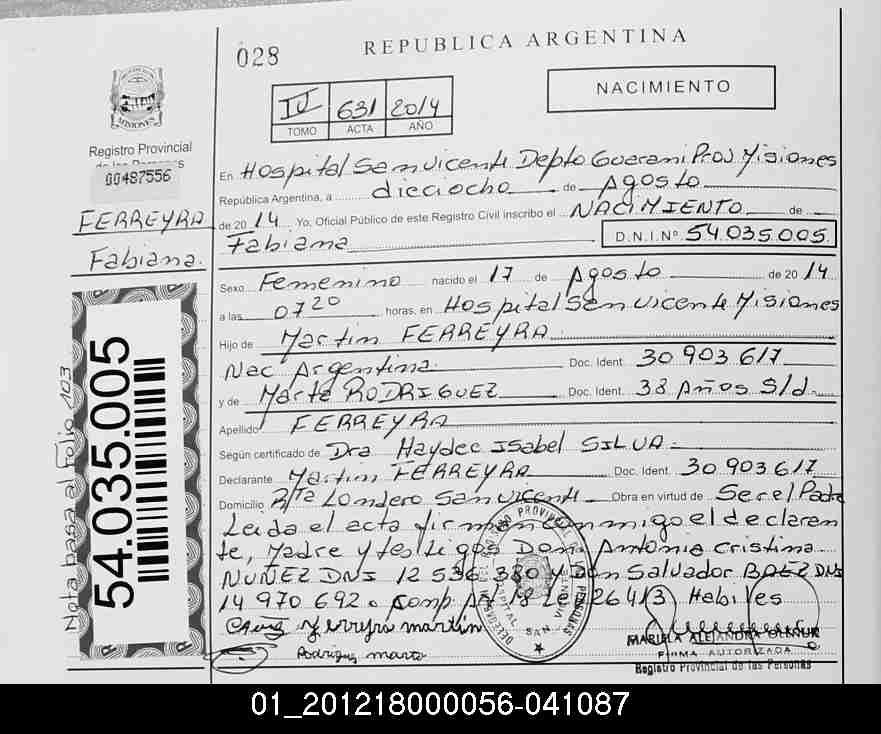 028
REPUBLICA ARGENTINA
NACIMIENTO
IV 631 2014
TOMO ACTA AÑO
MISIONES
Registro Provincial
de las Personas
00487556
FERREYRA
Fabiana.
Nota basa al Folio 103
54.035.005
En Hospital San Vicente Depto Guarani Prov Misiones
República Argentina, a dieciocho de Agosto
de 2014 Yo, Oficial Público de este Registro Civil inscribo el NACIMIENTO de
Fabiana D.N.I.Nº 54.035.005.
Sexo Femenino nacido el 17 de Agosto de 2014
a las 07 20 horas, en Hospital San Vicente Misiones
Hijo de Martin FERREYRA
Nac Argentina. Doc. Ident 30 903 617
y de Marta RODRIGUEZ Doc. Ident. 38 Años S/d
Apellido FERREYRA
Según certificado de Dra Haydee Isabel SILVA.
Declarante Martin FERREYRA Doc. Ident. 30 903 617
Domicilio Londero San Vicente Obra en virtud de Ser el Padre
Leida el acta firman conmigo el declaran
te, Madre y testigos Doña Antonia Cristina
NUÑEZ DNI 12 536 380 y Don Salvador BAEZ DNI
14 970 692. Comp. 18 Ley 26413 Habiles
Ferreyra martin
Rodriguez marta
MARIELA ALEJANDRA
FIRMA AUTORIZADA
Registro Provincial de las Personas
01_201218000056-041087